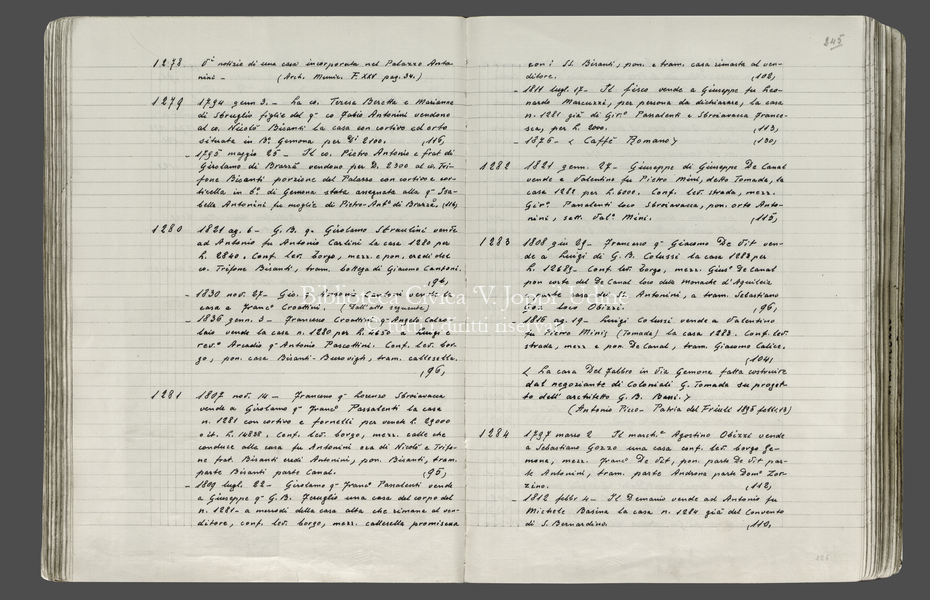 245
1278 Vi notizie di una casa incorporata nel Palazzo Anto-
nini - (Arch. Munic. F. XXV pag. 34.)
1279 1794 genn 3. - La co. Teresa Beretta e Marianne
di Sbruglio figlie del q- co Fabio Antonini vendono
al co. Nicolò Bisanti la casa con cortivo ed orto
situata in Bo. Gemona per Di 2100. (116)
- 1795 maggio 25 - Il co. Pietro Antonio e frat. di
Girolamo di Brazzà vendono per D. 2300 al co. Tri-
fone Bisanti porzione del Palazzo con cortivo e cor-
ticella in bo. di Gemona stata assegnata alla q- Isa-
bella Antonini fu moglie di Pietro-Anto di Brazzà. (116)
1280 1821 ag. 6 - G. B. q. Girolamo Straulini vende
ad Antonio fu Antonio Carlini la casa 1280 per
L. 2840. Conf. lev. borgo, mezz. e pon. eredi del
co. Trifone Bisanti, tram. bottega di Giacomo Cantoni.
(94)
- 1830 nov. 27 - Antonio vende la
casa a Franco Croattini. (Dall'atto seguente)
- 1836 genn. 3 - Francesco Croattini q- Angelo Calzo-
laio vende la casa n. 1280 per L. 4650 a Luigi e
revo Arcadio q- Antonio Pascottini. Conf. lev. bor-
go, pon. case Bisanti - tram. callesella.
(96)
1281 1807 nov. 14 - Francesco q- Lorenzo Sbroiavacca
vende a Girolamo q- Franco Passalenti la casa
n. 1281 con cortivo e fornelli per venete L. 29000
o it. L. 14838. Conf. lev. borgo, mezz. calle che
conduce alla casa fu Antonini ora di Nicolò e Trifo-
ne frat. Bisanti eredi Antonini, pon. Bisanti, tram.
parte Bisanti parte Canal. (95)
- 1809 lugl. 22 - Girolamo q- Franco Passalenti vende
a Giuseppe q- G. B. Feruglio una casa del corpo del
n. 1281 - a mezzodì della casa alta che rimane al ven-
ditore, conf. lev. borgo, mezz. callesella promiscua
con i SS. Bisanti, pon. e tram. casa rimasta al ven-
ditore. (102)
- 1811 lugl. 17 - Il fisco vende a Giuseppe fu Leo-
nardo Marcuzzi, per persona da dichiarare, la casa
n. 1281 già di Giro Passalenti e Sbroiavacca France-
sca, per L. 2000. (113)
- 1876 - < Caffè Romano > (130)
1282 1821 genn. 27 - Giuseppe di Giuseppe De Canal
vende a Valentino fu Pietro Mini, detto Tomada, la
casa 1282 per L. 6000. Conf. lev. strada, mezz.
Giro. Passalenti loco Sbroiavacca, pon. orto Anto-
nini, sett. Valo Mini. (115)
1283 1808 giu 29 - Francesco q- Giacomo De Vit ven-
de a Luigi di G. B. Colussi la casa 1283 per
L. 12689 - Conf. lev. borgo, mezz. Giuso De Canal
pon corte del De Canal loco delle monache d'Aquileia
e parte eredi Antonini, a tram. Sebastiano
loco Obizzi. (96)
- 1816 ag. 19 - Luigi Colussi vende a Valentino
fu Pietro Minis (Tomada) la casa 1283. Conf. lev.
strada, mezz e pon. De Canal, tram. Giacomo Calice.
(104)
< La casa Del Fabbro in Via Gemona fatta costruire
dal negoziante di Coloniali G. Tomada su proget-
to dell'architetto G. B. Bassi. >
(Antonio Picco - Patria del Friuli 1895 febb. 13)
1284 1797 marzo 2 Il marcho Agostino Obizzi vende
a Sebastiano Gozzo una casa conf. lev. borgo Ge-
mona, mezz. Franco De Vit, pon. parte De Vit par-
te Antonini, tram. parte Androna parte Domo Zor-
zino. (112)
- 1812 febbr 4 - Il Demanio vende ad Antonio fu
Michele Basina la casa n. 1284 già del Convento
di S. Bernardino. (110)
Biblioteca Civica "V. Joppi" Udine
© Tutti i diritti riservati